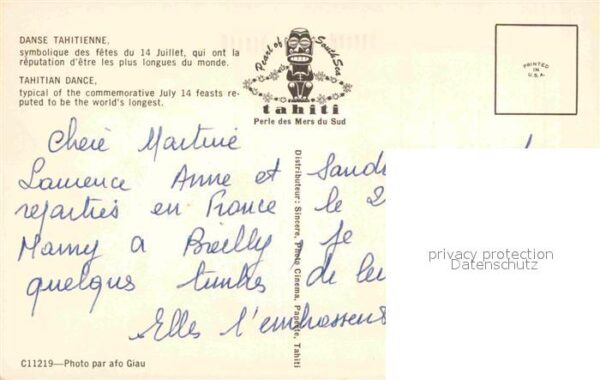 DANSE TAHITIENNE,
symbolique des fêtes du 14 Juillet, qui ont la
réputation d'être les plus longues du monde.
TAHITIAN DANCE,
typical of the commemorative July 14 feasts re-
puted to be the world's longest.
Pearl of South Sea
tahiti
Perle des Mers du Sud
PRINTED
IN
U.S.A.
Cheré Martine
Laurence Anne et
reparties en France le 2
Mamy à je
quelques de
Elles t'embrassent
Distributeur: Sincere, Photo Cinema, Papeete, Tahiti
privacy protection
Datenschutz
C11219—Photo par afo Giau